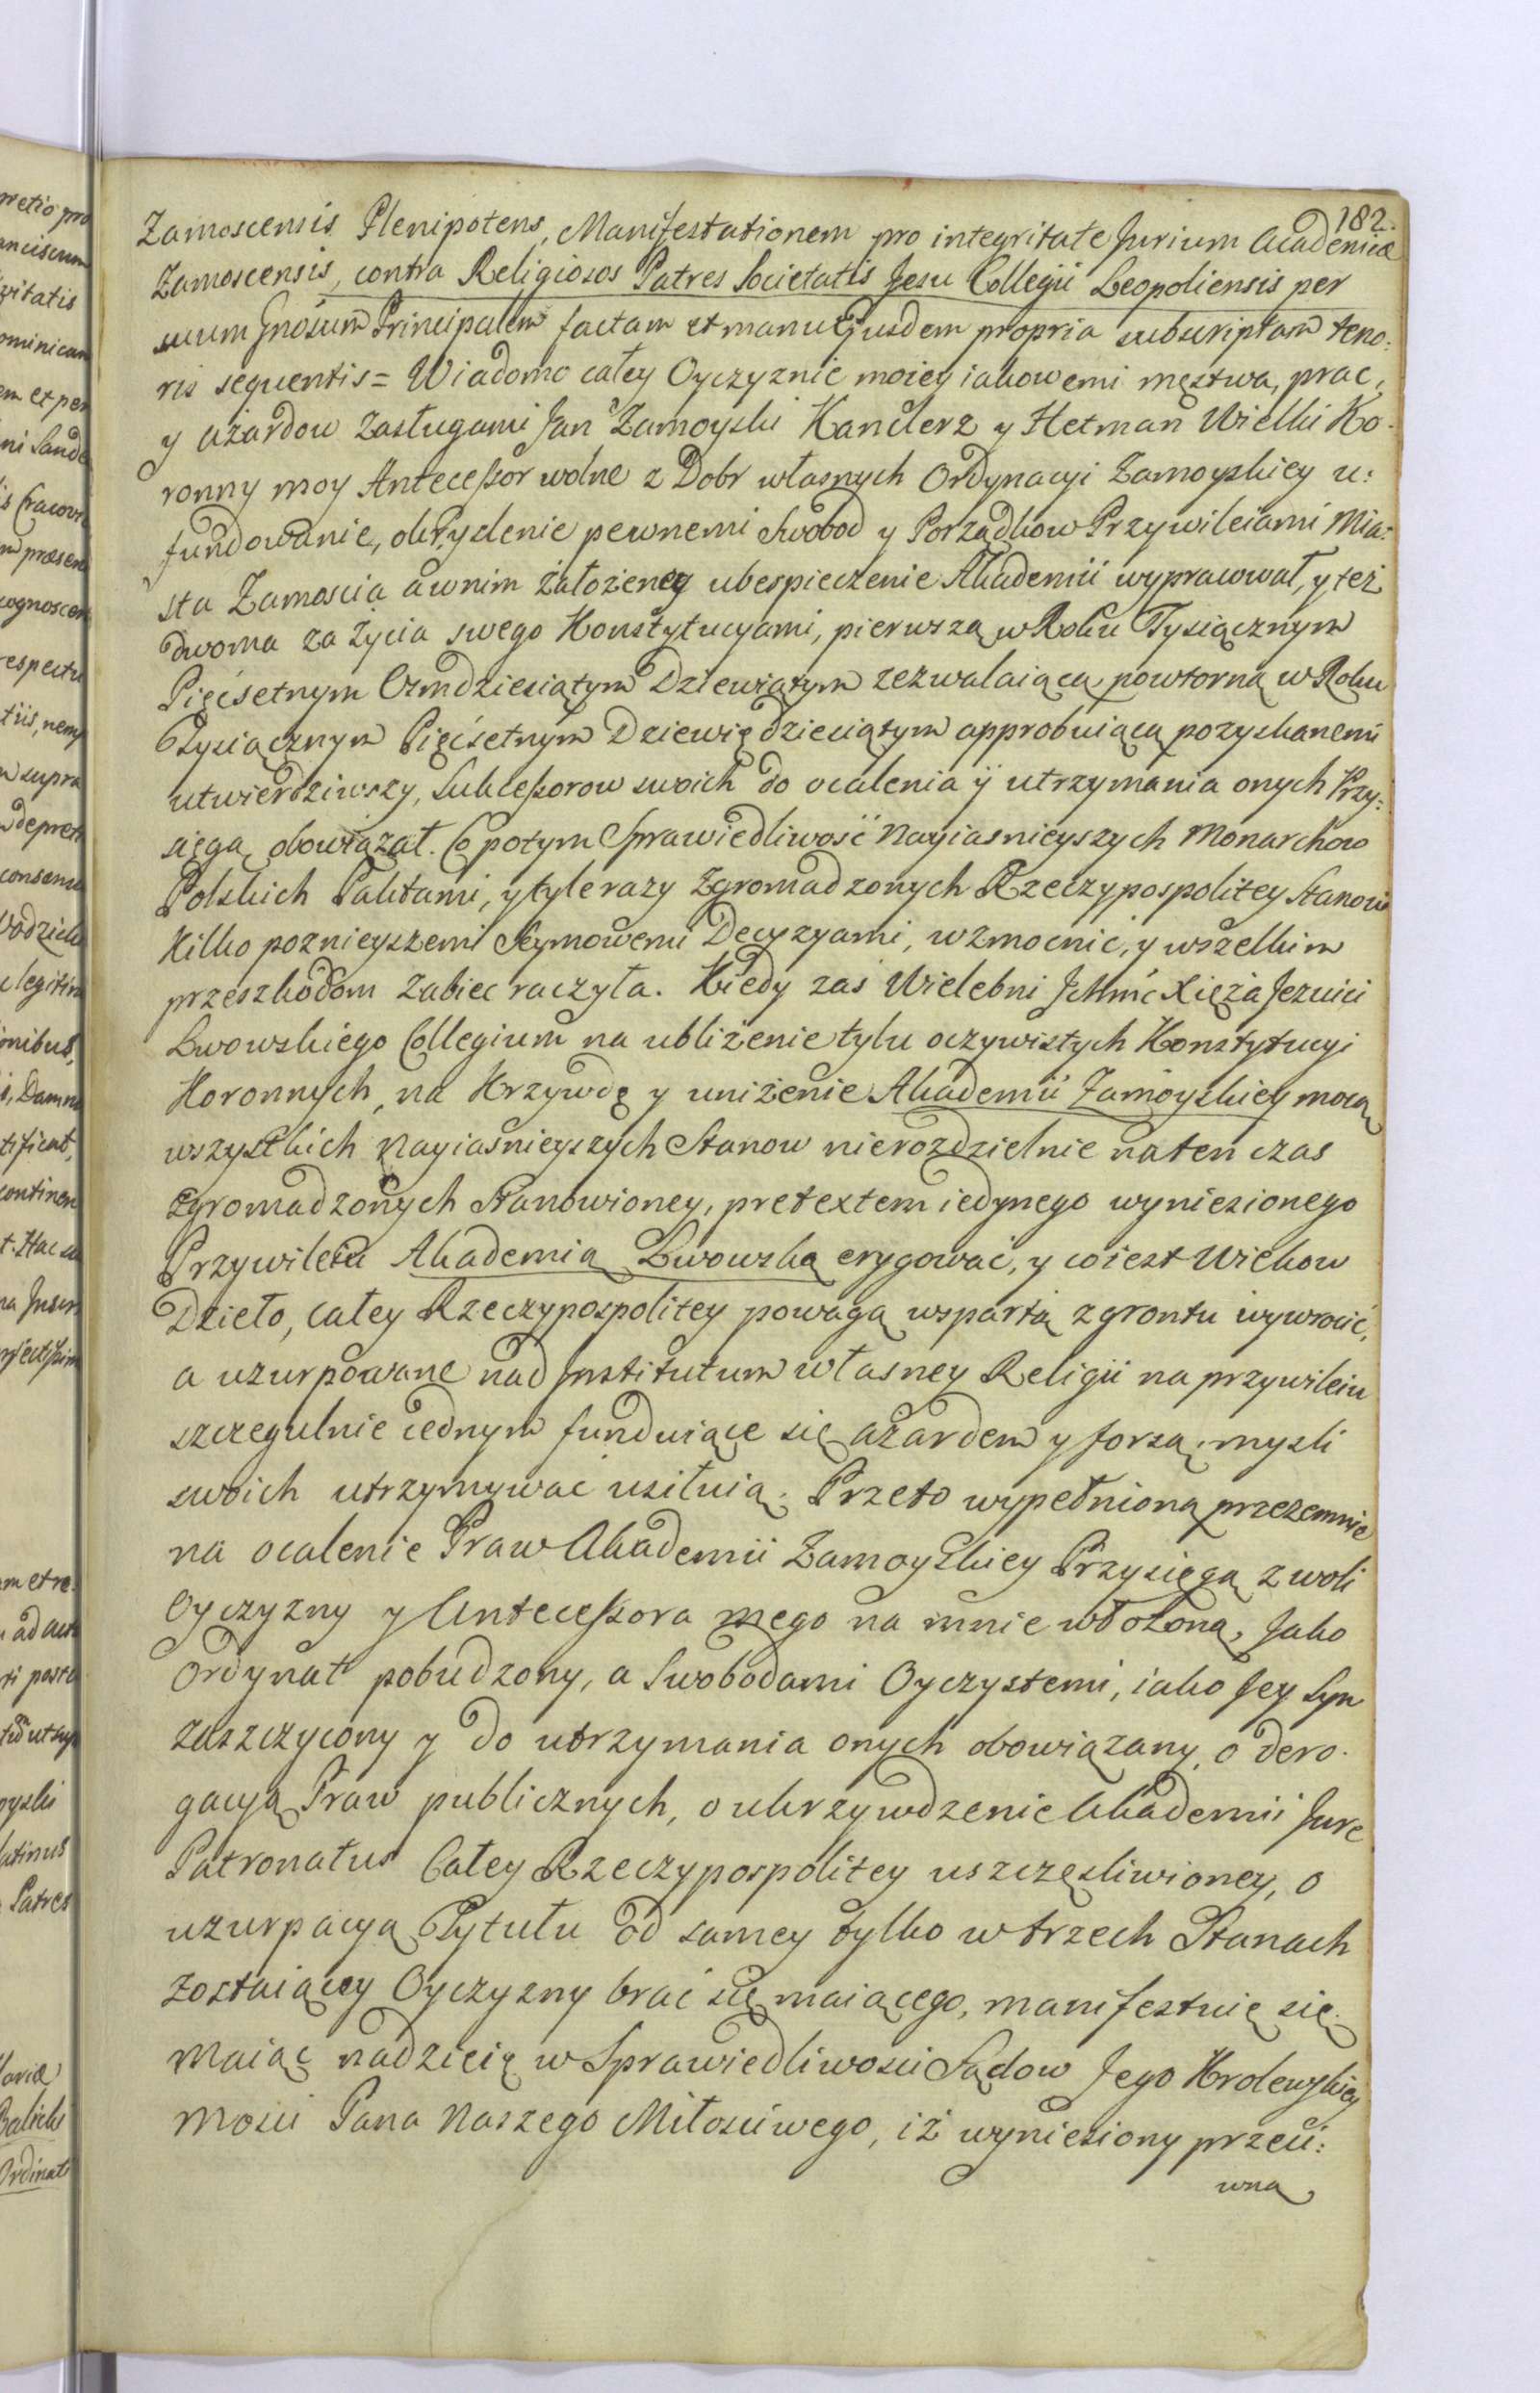 182.
Zamoscensis Plenipotens, Manifestationem pro integritate Jurium Academiæ
Zamoscensis, contra Religiosos Patres Societatis Jesu Collegii Leopoliensis per
suum Gnosum Principalem factam et manu Ejusdem propria subscriptam teno:
ris sequentis = Wiadomo całey Oyczyznie moiey iakowemi męstwa, prac,
y ażardow zasługami Jan Zamoyski Kanclerz y Hetman Wielki Ko-
ronny moy Antecessor wolne z Dobr własnych Ordynacyi Zamoyskiey u:
fundowanie, okryslenie pewnemi Swobod y Porządkow Przywileiami Mia:
sta Zamoscia a w nim założeney ubespieczenie Akademii wypracował, y też
dwoma za życia swego Konstytucyami, pierwszą w Roku Tysiącznym
Pięcsetnym Osmdziesiątym Dziewiątym zezwalaiącą, powtorną w Roku
Tysiącznym Pięćsetnym Dziewiędziesiątym approbuiącą pozyskanemi
utwierdziwszy, Sukcessorow swoich do ocalenia ÿ utrzymania onych Przy:
sięgą obowiązał. Co potym Sprawiedliwość Nayiasnieyszych Monarchow
Polskich Paktami, y tyle razy Zgromadzonych Rzeczypospolitey Stanow
Kilko poznieyszemi Seymowemi Decyzyami, wzmocnic, y wszelkim
przeszkodom zabiec raczyła. Kiedy zaś Wielebni JchMć Xięża Jezuici
Lwowskiego Collegium na ubliżenie tylu oczywistych Konstytucyi
Koronnych, na Krzywdę y uniżenie Akademii Zamoyskiey mocą
wszystkich Nayiaśnieyszych Stanow nierozdzielnie naten czas
zgromadzonych Stanowioney, pretextem iedynego wyniesionego
Przywileiu Akademią Lwowską erygować, y co iest Wiekow
Dzieło, całey Rzeczypospolitey powagą wspartą z grontu wywrocić,
a uzurpowane nad Institutum własney Religii na przywileiu
szczegulnie iednym funduiące się ażardem y forsą mysli
swoich utrzymywać usiłuią. Przeto wypełnioną przezemnie
na ocalenie Praw Akademii Zamoyskiey Przysięgą z woli
Oyczyzny y Antecessora mego na mnie włożoną, Jako
Ordynat pobudzony, a Swobodami Oyczystemi, iako Jey Syn
zaszczycony y do utrzymania onych obowiązany, o dero-
gacyą Praw publicznych, o ukrzywdzenie Akademii Jure
Patronatus Całey Rzeczypospolitey uszczęsliwioney, o
uzurpacyą Tytułu od samey tylko w trzech Stanach
zostaiącey Oyczyzny brać się maiącego, manifestuię się.
Maiąc nadzieię w Sprawiedliwosci Sądow Jego Krolewskiey
Mosci Pana Naszego Miłosciwego, iż wyniesiony przeci:
wna